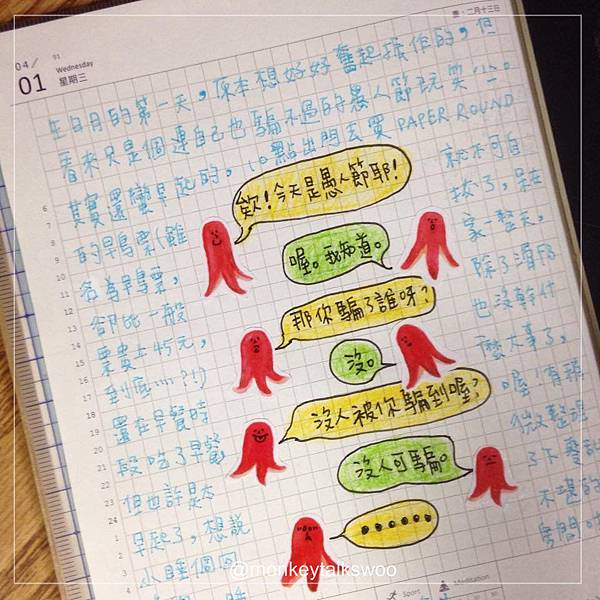 農·二月十三日
04/
91
01
Wednesday
星期三
在4月的第一天，原本想好好奮起振作的，但
看來只是個連自己也騙不過的愚人節玩笑
其實還蠻早起的，10點出門去買PAPER ROUND
的早鳥票(雖
名為早鳥票，
卻比一般
票貴士45元，
到底
還在早餐時
段吃了早餐
但也許是太
早起了，想說
小睡個回
欸！今天是愚人節耶！
喔。我知道。
那你騙了誰呀？
沒。
沒人被你騙到喔？
沒人可騙。
......
就不可自
拔了，呆在
家一整天，
除了
也沒幹什
麼大事了，
喔 有稍
微整理
了下
不堪的
房間
6
7
8
9
10
11
12
13
14
15
16
17
18
19
20
21
22
23
24
1
2
3
4
Sport
Meditation
@monkeytalkswoo